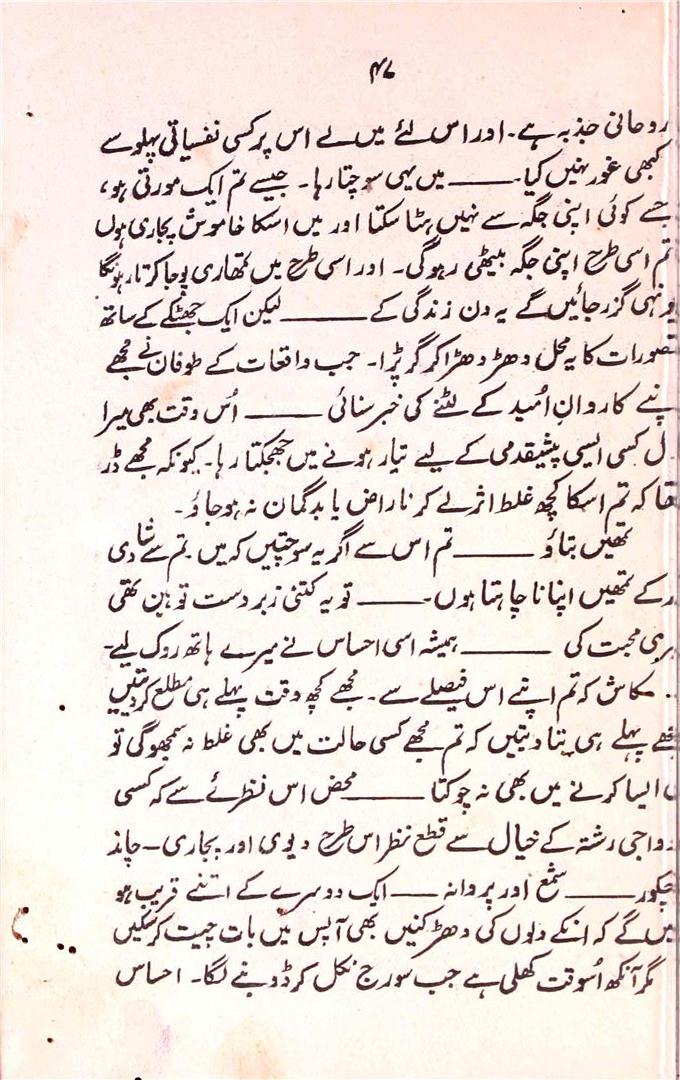 ۴۷
روحانی جذبہ ہے۔ اور اس لئے میں نے اس پر کسی نفسیاتی پہلو سے
کبھی غور نہیں کیا۔ ــــــ میں یہی سوچتا رہا۔ جیسے تم ایک مورتی ہو،
جسے کوئی اپنی جگہ سے نہیں ہٹا سکتا اور میں اسکا خاموش پجاری ہوں
تم اسی طرح اپنی جگہ بیٹھی رہوگی۔ اور اسی طرح میں تمھاری پوجا کرتا رہونگا
یونہی گزر جائیں گے یہ دن زندگی کے ــــــ لیکن ایک جھٹکے کے ساتھ
تصورات کا یہ محل دھڑ دھڑا کر گر پڑا۔ جب واقعات کے طوفان نے مجھے
پنے کاروانِ اُمید کے لٹنے کی خبر سنائی ــــــ اُس وقت بھی میرا
ل کسی ایسی پیشقدمی کے لیے تیار ہونے میں جھجکتا رہا۔ کیونکہ مجھے ڈر
تھا کہ تم اسکا کچھ غلط اثر لے کر ناراض یا بدگمان نہ ہو جاؤ۔
تمھیں بتاؤ ــــــ تم اس سے اگر یہ سوچتیں کہ میں تم سے شادی
کرکے تمھیں اپنانا چاہتا ہوں۔ ــــــ تو یہ کتنی زبردست توہین تھی
یری محبت کی ــــــ ہمیشہ اسی احساس نے میرے ہاتھ روک لیے۔
کاش کہ تم اپنے اس فیصلے سے۔ مجھے کچھ وقت پہلے ہی مطلع کر دیتیں
مجھے پہلے ہی بتا دیتیں کہ تم مجھے کسی حالت میں بھی غلط نہ سمجھوگی تو
ں ایسا کرنے میں بھی نہ چوکتا ــــــ محض اس نظرئے سے کہ کسی
زدواجی رشتہ کے خیال سے قطع نظر اس طرح دیوی اور پجاری – چاند
چکور ــــــ شمع اور پروانہ ــــــ ایک دوسرے کے اتنے قریب ہو
ئیں گے کہ انکے دلوں کی دھڑکنیں بھی آپس میں بات چیت کر سکیں
گر آنکھ اُسوقت کھلی ہے جب سورج نکل کر ڈوبنے لگا۔ احساس